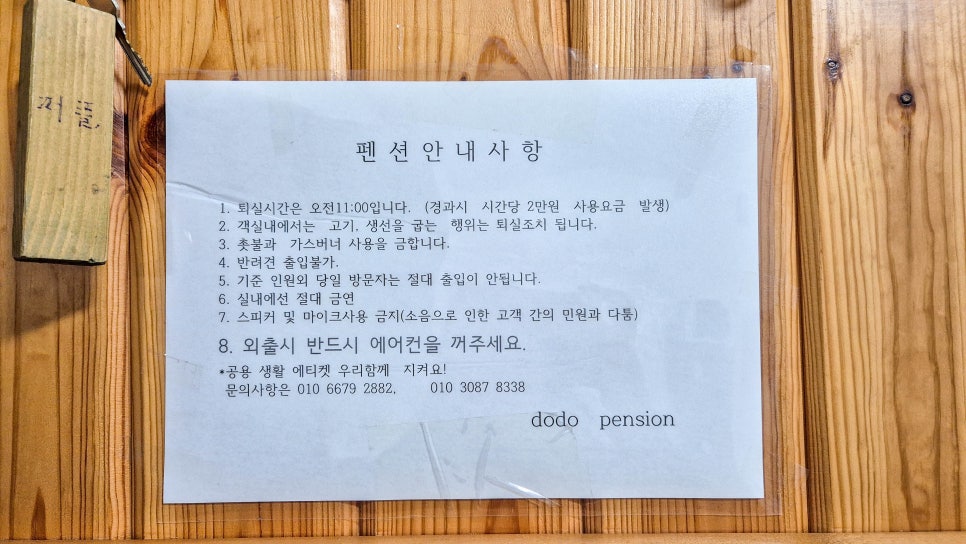 퍼플
펜션안내사항
1. 퇴실시간은 오전11:00입니다. (경과시 시간당 2만원 사용요금 발생)
2. 객실내에서는 고기, 생선을 굽는 행위는 퇴실조치 됩니다.
3. 촛불과 가스버너 사용을 금합니다.
4. 반려견 출입불가.
5. 기준 인원외 당일 방문자는 절대 출입이 안됩니다.
6. 실내에선 절대 금연
7. 스피커 및 마이크사용 금지(소음으로 인한 고객 간의 민원과 다툼)
8. 외출시 반드시 에어컨을 꺼주세요.
*공용 생활 에티켓 우리함께 지켜요!
문의사항은 010 6679 2882, 010 3087 8338
dodo pension